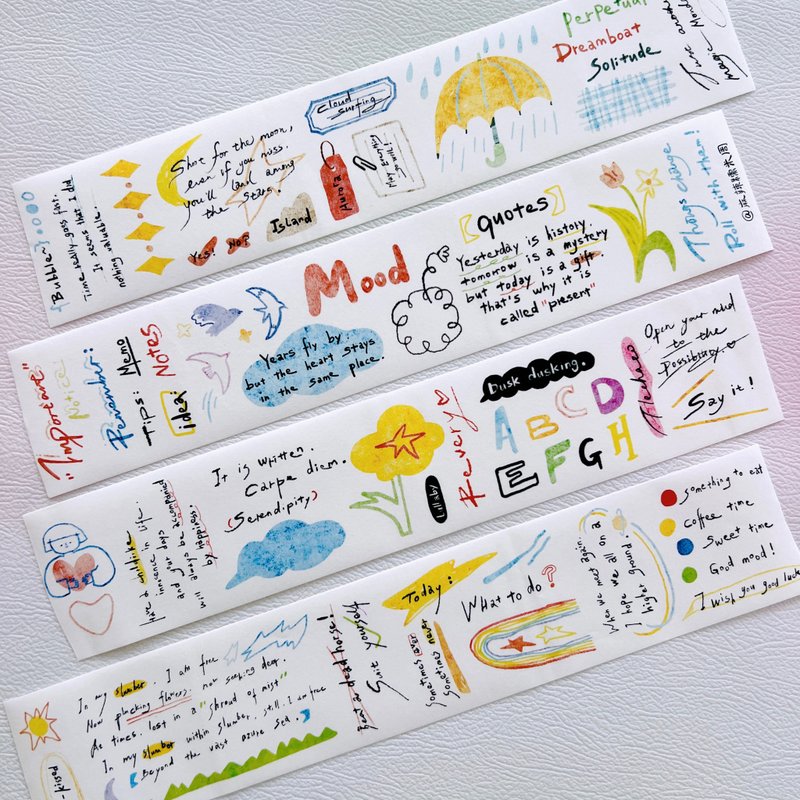 Bubble~
Time really goes fast.
It seems that I did
nothing valuable.
Shot for the moon,
even if you miss.
you'll land among
the stars.
Yes!
No?
Island
Cloud
surfing
Aurora
May everything
go well!
Perpetual
Dreamboat
Solitude
June another
magic Monday
"Important"
Notice!
Remember:
Tips:
Memo
Notes
idea:
Years fly by.
but the heart stays
in the same place.
Mood
Quotes
Yesterday is history.
tomorrow is a mystery
but today is a gift.
that's why it is
called "present"
Things change
Roll with them!
Have a childlike
innocence in life.
and your days
will always be accompanied
by happiness.
It is written.
Carpe diem.
(Serendipity)
Lullaby
Revery
Dusk dusking.
A B C D
E F G H
Open your mind
to the
Possibility.
Say it!
-kissed
In my slumber. I am free
Now plucking flowers. now seeking deer.
At times. lost in a "shroud of mist"
In my slumber within slumber. still. I am free
Beyond the vast azure sea.
Beat a dead horse!
Suit yourself
Today:
Sometimes ever
sometimes never
What to do?
When we meet again.
I hope we all on a
higher ground.
Something to eat
Coffee time
Sweet time
Good mood!
I wish you good luck